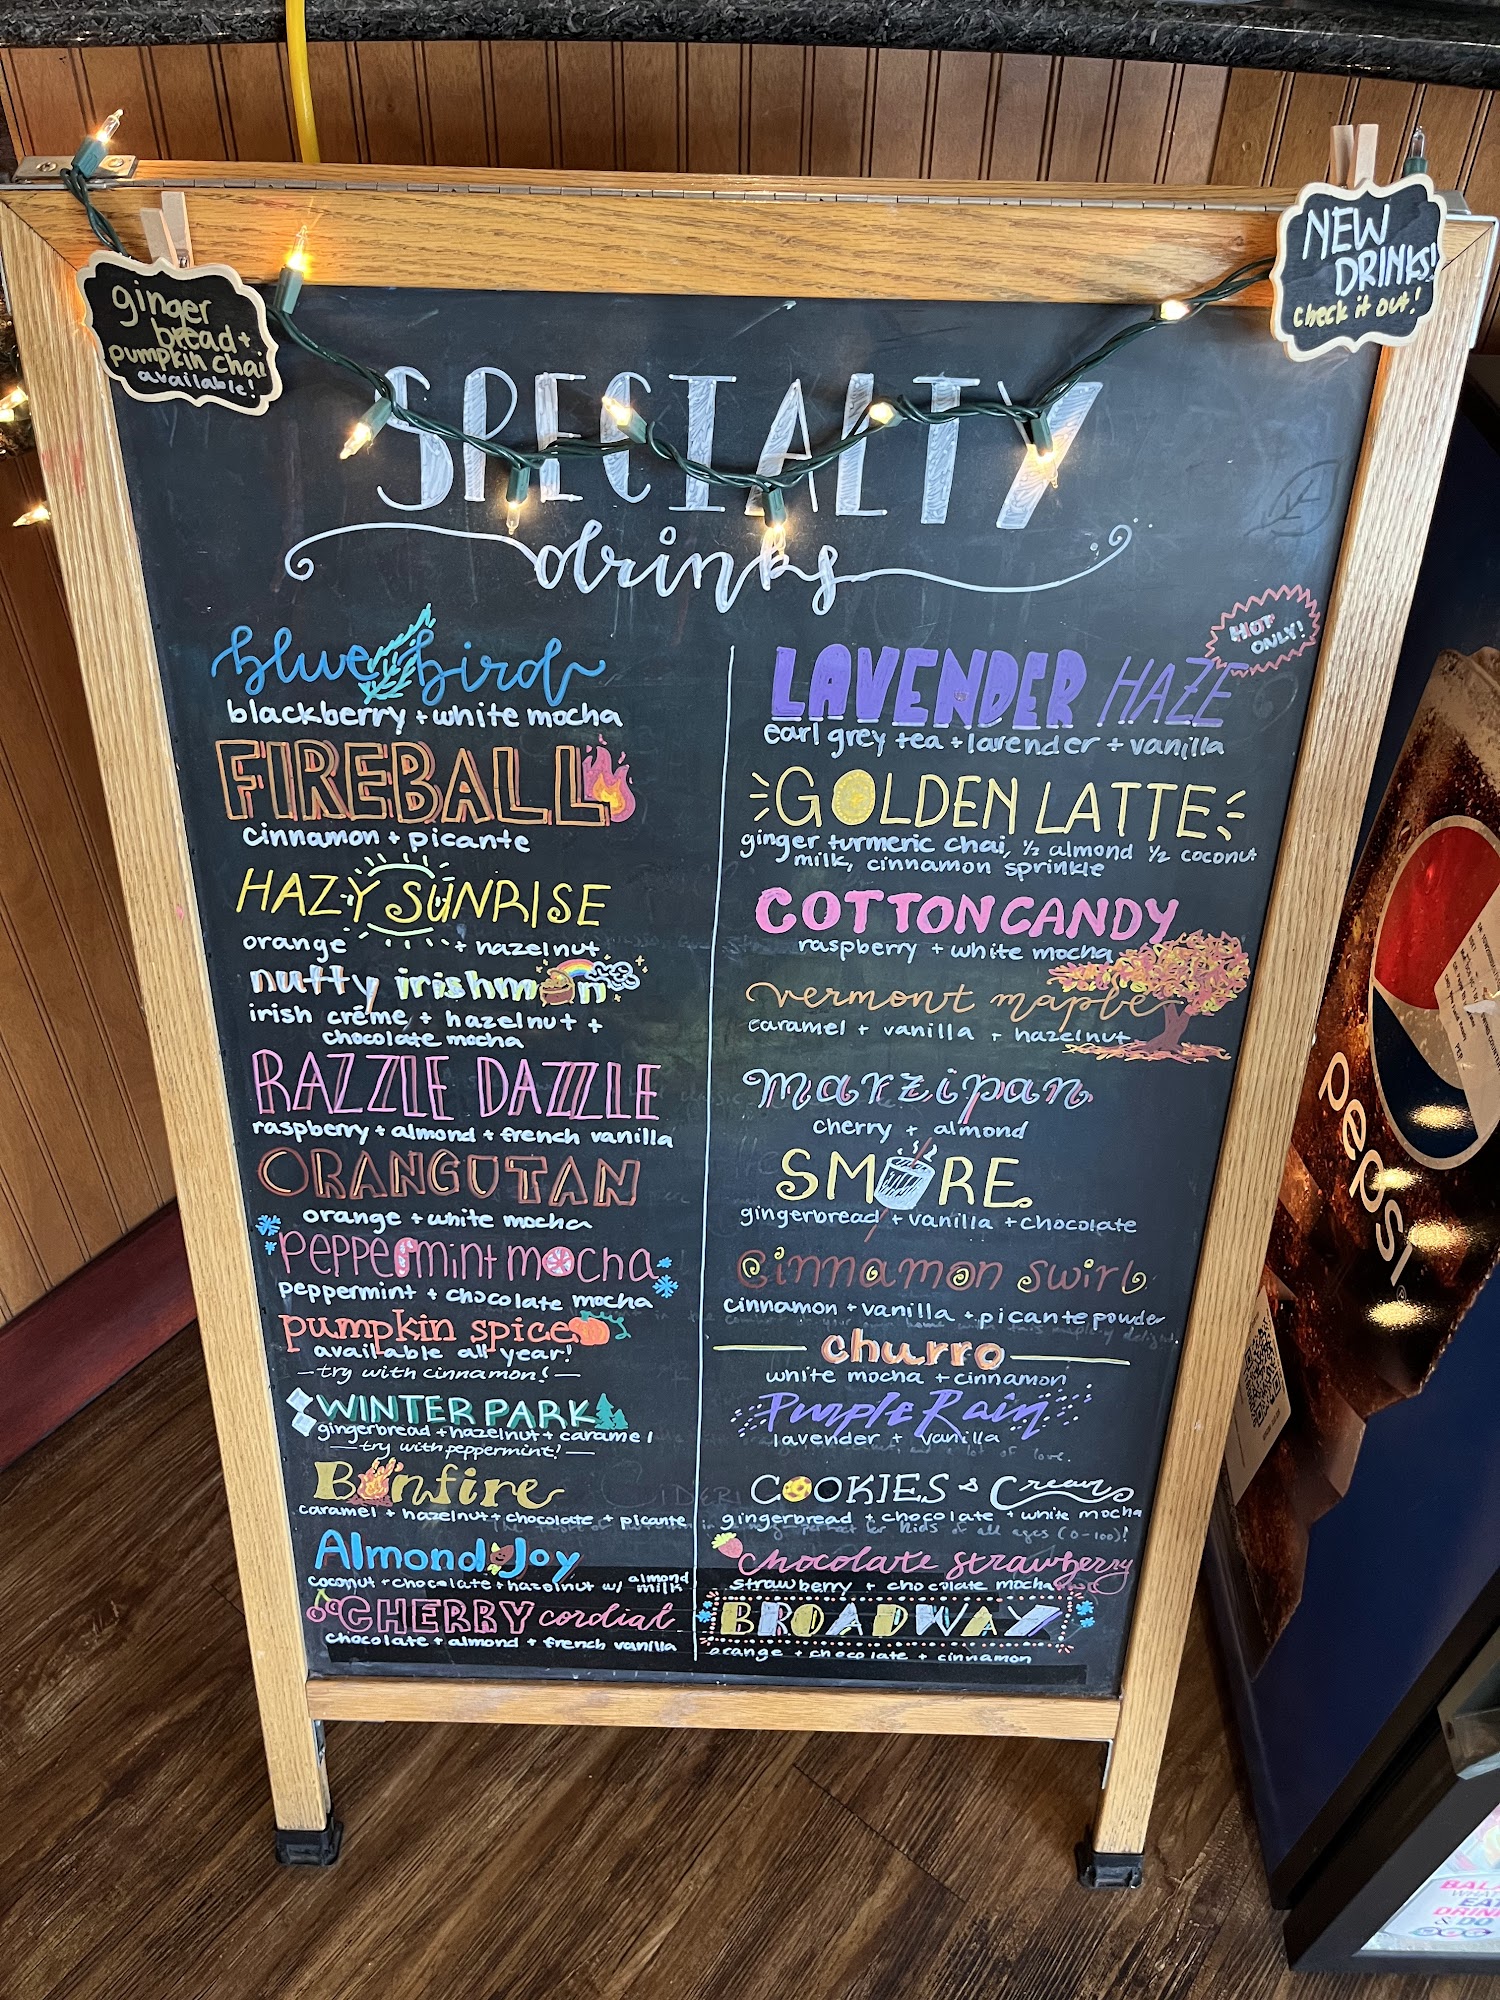 ginger
bread +
pumpkin chai
available!
NEW
DRINKS!
check it out!
SPECIALTY
drinks
blue bird
blackberry + white mocha
FIREBALL
cinnamon + picante
HAZY SUNRISE
orange + hazelnut
nutty irishmon
irish créme + hazelnut +
chocolate mocha
RAZZLE DAZZLE
raspberry + almond + french vanilla
ORANGUTAN
orange + white mocha
peppermint mocha
peppermint + chocolate mocha
pumpkin spice
available all year!
— try with cinnamon! —
WINTER PARK
gingerbread + hazelnut + caramel
— try with peppermint! —
Bonfire
caramel + hazelnut + chocolate + picante
Almond Joy
coconut + chocolate + hazelnut w/ almond
milk
CHERRY cordial
chocolate + almond + french vanilla
HOT
ONLY!
LAVENDER HAZE
earl grey tea + lavender + vanilla
GOLDEN LATTE
ginger turmeric chai, ½ almond ½ coconut
milk, cinnamon sprinkle
COTTON CANDY
raspberry + white mocha
vermont maple
caramel + vanilla + hazelnut
marzipan
cherry + almond
SMORE
gingerbread + vanilla + chocolate
cinnamon swirl
cinnamon + vanilla + picante powder
churro
white mocha + cinnamon
Purple Rain
lavender + vanilla
COOKIES & Cream
gingerbread + chocolate + white mocha
chocolate strawberry
strawberry + chocolate mocha
BROADWAY
orange + chocolate + cinnamon
pepsi